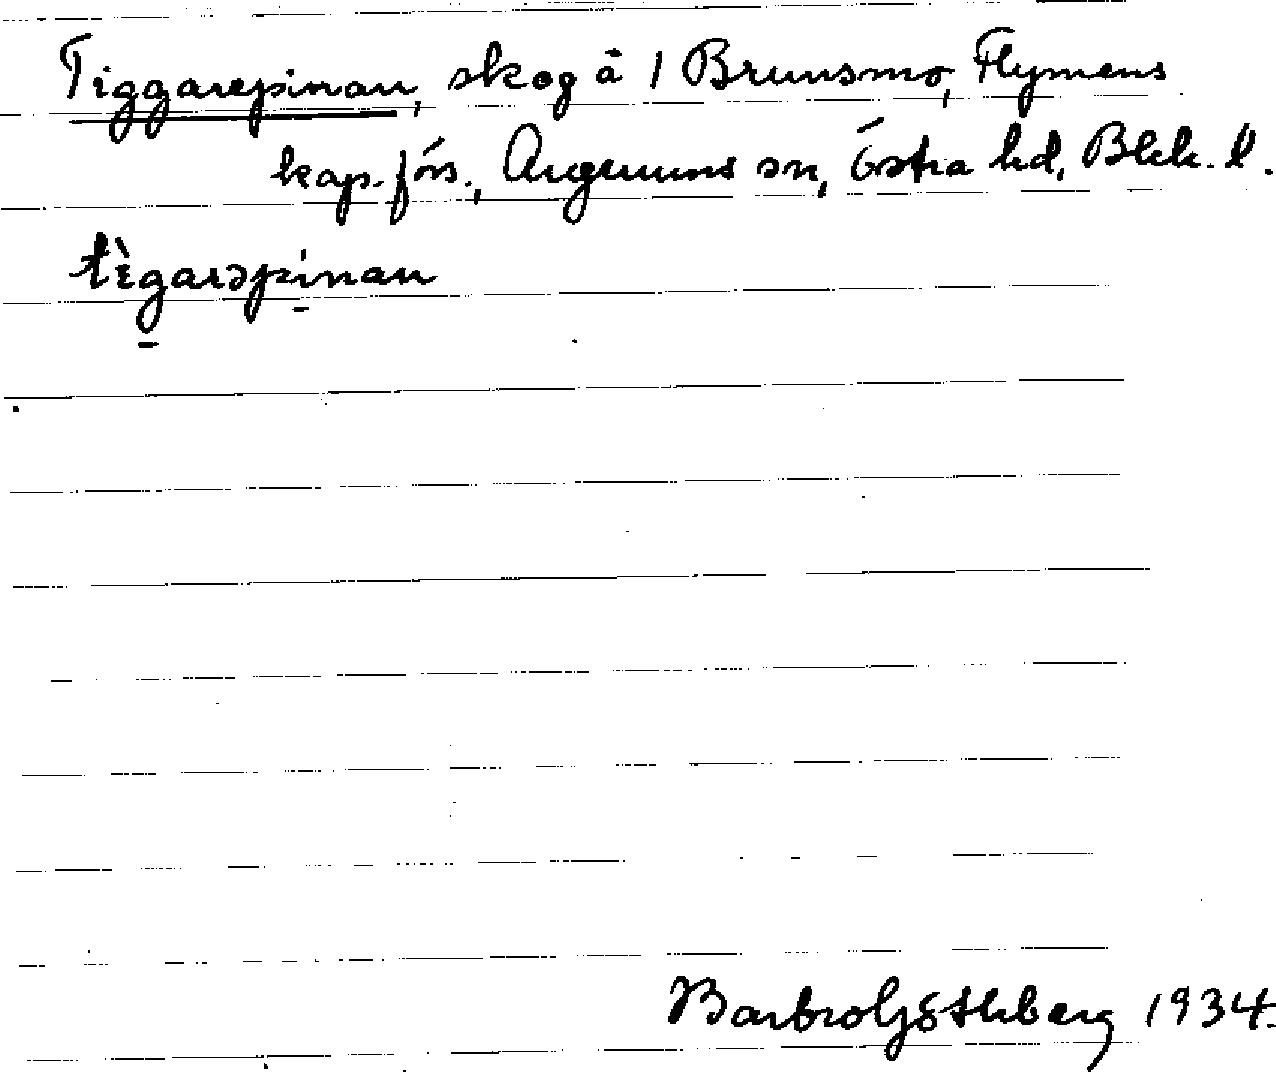 Tiggarepinan, skog å 1 Brunsmo, Flymens
kap. förs., Augerums sn, Östra hd, Blek. l.
tìgarəpínan
Barbro Göthberg 1934.